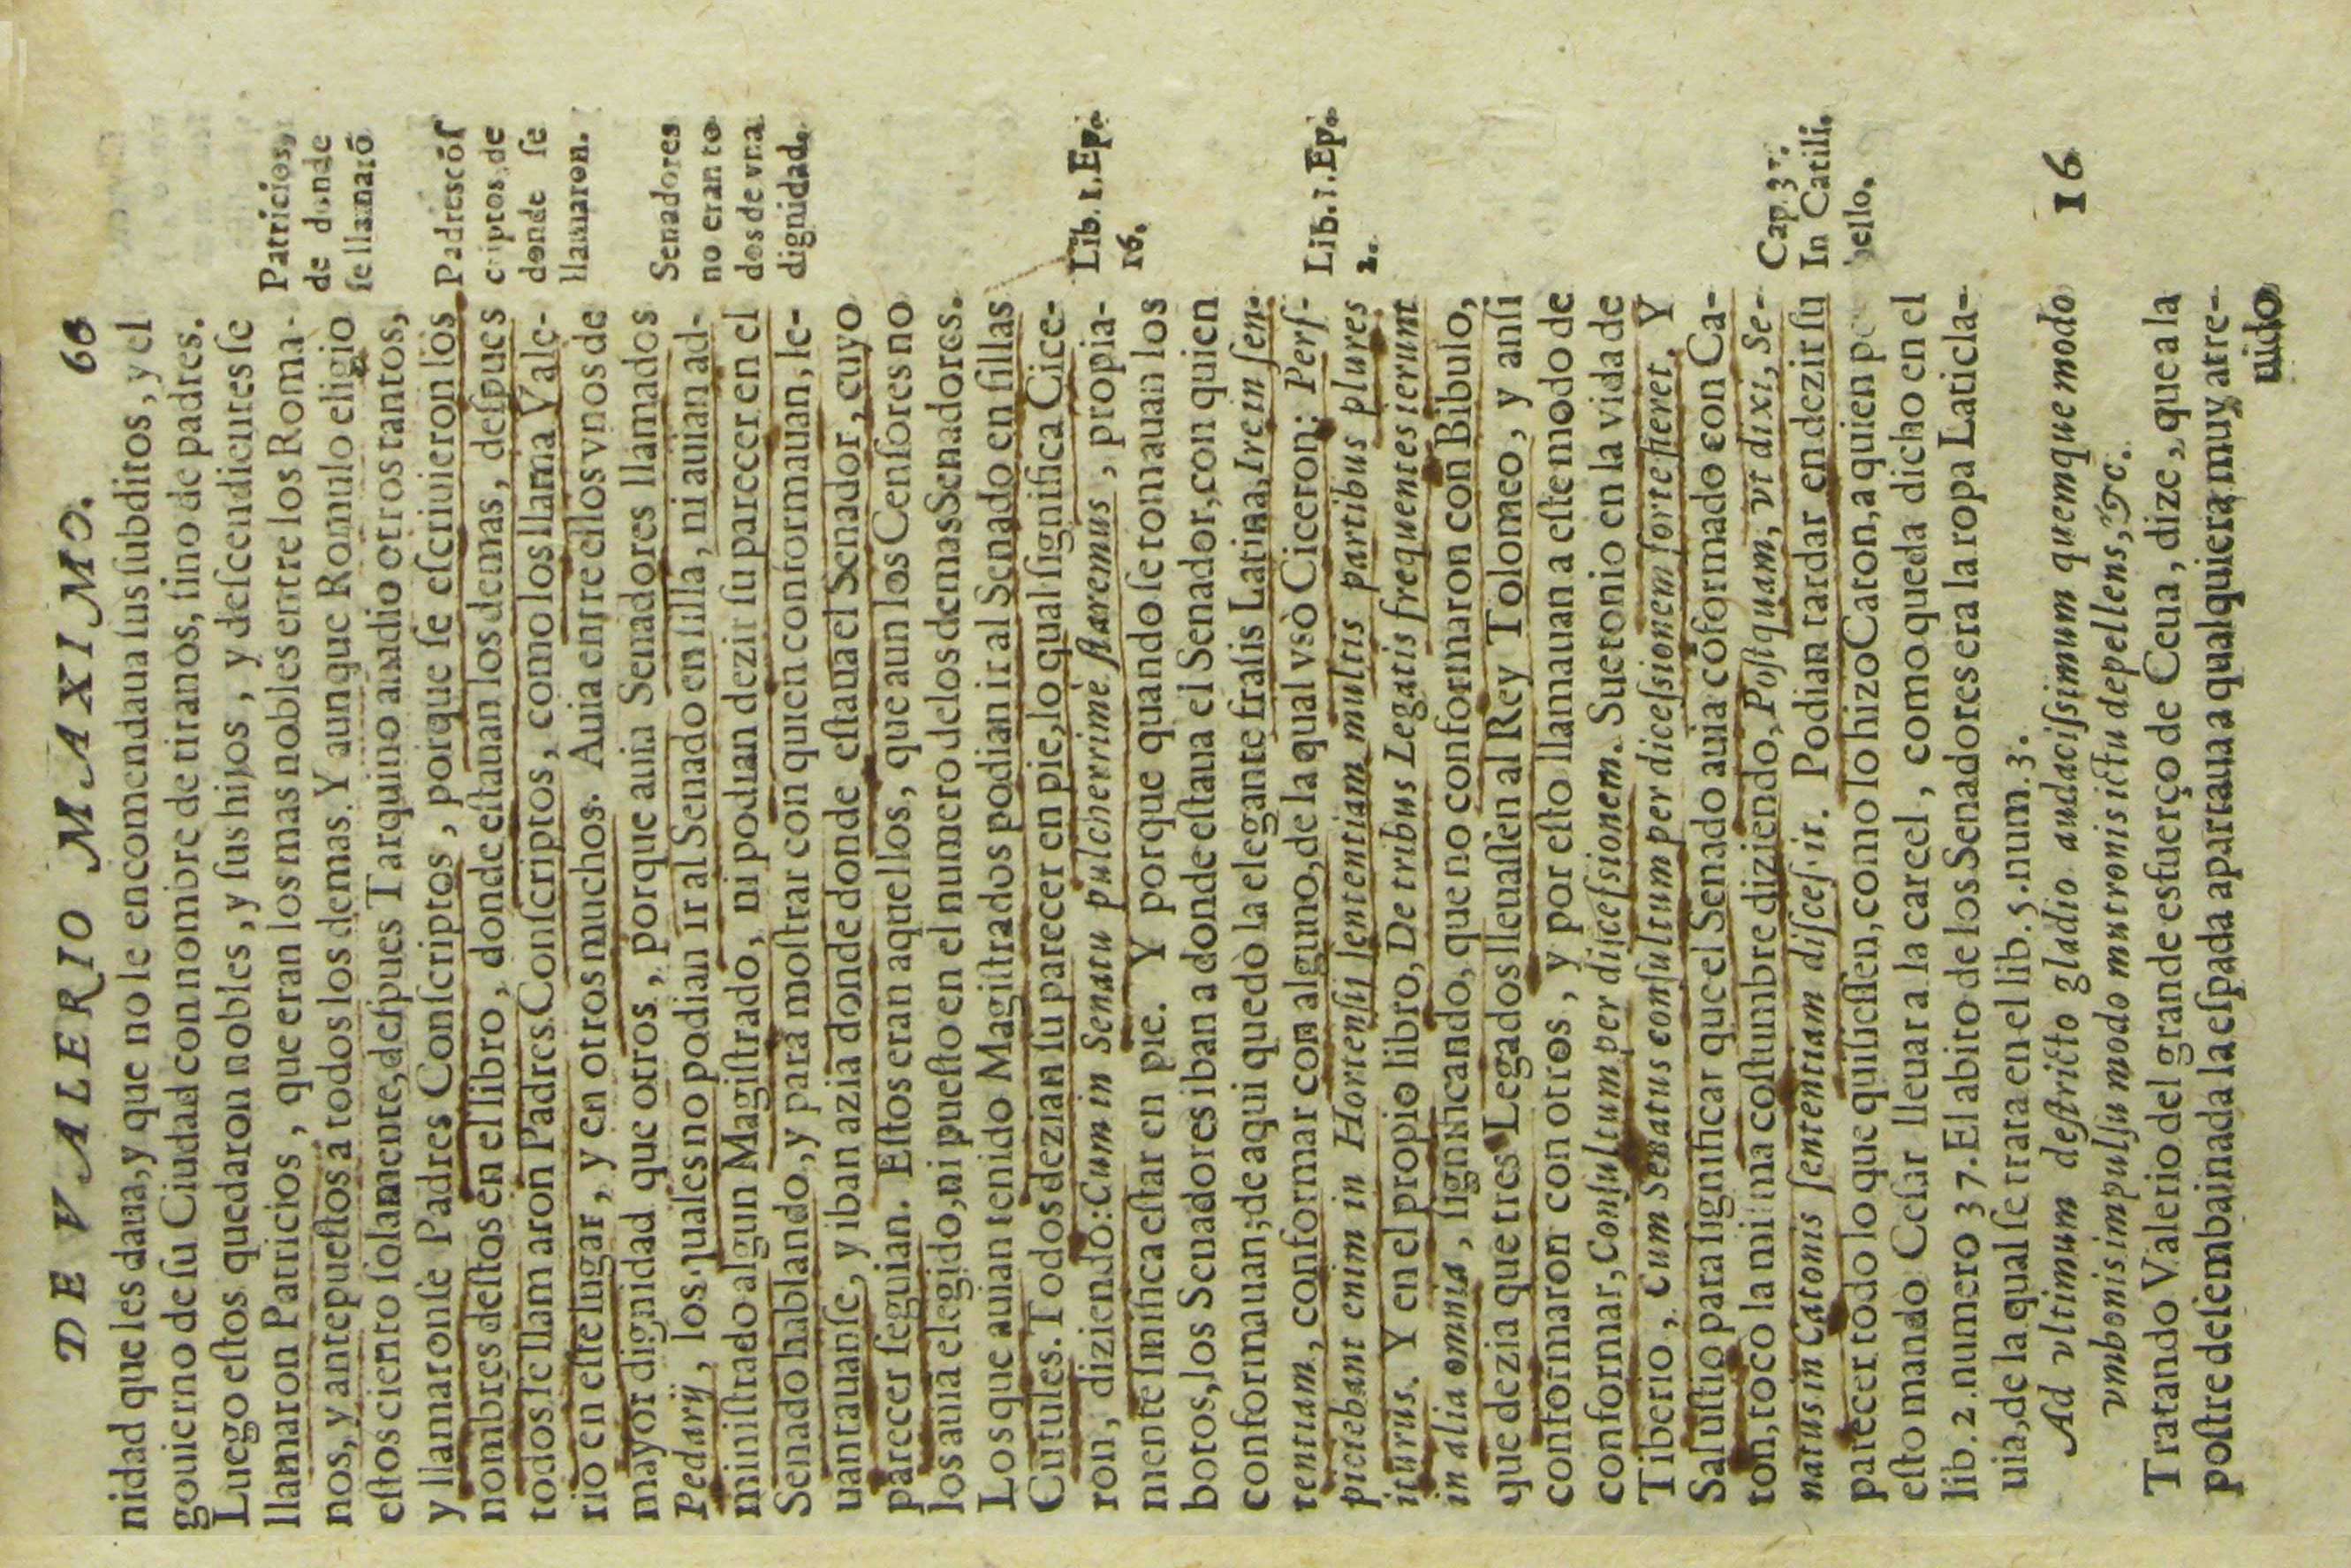 DE VALERIO MAXIMO. 60
nidad que les daua, y que no le encomendaua sus subditos, y el
gouierno de su Ciudad con nombre de tiranos, sino de padres.
Luego estos quedaron nobles, y sus hijos, y descendientes se
llamaron Patricios, que eran los mas nobles entre los Roma-
nos, y antepuestos a todos los demas. Y aunque Romulo eligio
estos ciento solamente, despues Tarquino añadio otros tantos,
y llamaronse Padres Conscriptos, porque se escriuieron los
nombres destos en el libro, donde estauan los demas, despues
todos se llamaron Padres Conscriptos, como los llama Vale-
rio en este lugar, y en otros muchos. Auia entre ellos vnos de
mayor dignidad que otros, porque auia Senadores llamados
Pedarij, los quales no podian ir al Senado en silla, ni auian ad-
ministrado algun Magistrado, ni podian dezir su parecer en el
Senado hablando, y para mostrar con quien conformauan, le-
uantauanse, y iban azia donde donde estaua el Senador, cuyo
parecer seguian. Estos eran aquellos, que aun los Censores no
los auia elegido, ni puesto en el numero de los demas Senadores.
Los que auian tenido Magistrados podian ir al Senado en sillas
Cutules. Todos dezian su parecer en pie, lo qual significa Cice-
ron, diziendo: Cum in Senatu pulcherrimè staremus, propia-
mente sinifica estar en pie. Y porque quando se tomauan los
botos, los Senadores iban a donde estaua el Senador, con quien
conformauan; de aqui quedò la elegante frasis Latina, Ire in sen-
tentiam, conformar con alguno, de la qual vsò Ciceron: Pers-
piciebant enim in Hortensij sententiam multis partibus plures
ituros. Y en el propio libro, De tribus Legatis frequentes ierunt
in alia omnia, significando, que no conformaron con Bibulo,
que dezia que tres Legados lleuassen al Rey Tolomeo, y ansi
conformaron con otros, y por esto llamauan a este modo de
conformar, Consultum per discessionem. Suetonio en la vida de
Tiberio, Cum Senatus consultum per dicessionem forte fieret. Y
Salustio para significar que el Senado auia cōformado con Ca-
ton, tocò la misma costumbre diziendo, Postquam, vt dixi, Se-
natus in Catonis sententiam discessit. Podian tardar en dezir su
parecer todo lo que quisiessen, como lo hizo Caton, a quien
esto mandò Cesar lleuar a la carcel, como queda dicho en el
lib. 2. numero 37. El abito de los Senadores era la ropa Laticla-
uia, de la qual se trata en el lib. 5. num. 3.
Ad vltimum destricto gladio audacissimum quemque modo
vmbonis impulsu modo mucronis ictu depellens, &c.
Tratando Valerio del grande esfuerço de Ceua, dize, que a la
postre desembainada la espada apartaua a qualquiera muy atre-
uido
Patricios,
de donde
se llamarō
Padres cōs
criptos, de
donde se
llamaron.
Senadores
no eran to
dos de vna
dignidad.
Lib. 1. Ep.
16.
Lib. 1. Ep.
2.
Cap. 37.
In Catili.
bello.
16